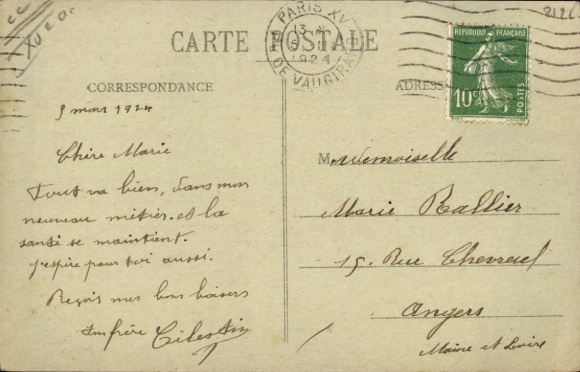 CARTE POSTALE
CORRESPONDANCE
ADRESSE
PARIS XV
13
1924
DE VAUGIRARD
RÉPUBLIQUE FRANÇAISE
10c
POSTES
9 mars 1924
Chère Marie
Tout va bien, dans mon
nouveau métier. et la
santé se maintient.
j'espère pour toi aussi.
Reçois mes bons baisers
ton frère Célestin
Mademoiselle
Marie Rallier
15. Rue Chevreul
Angers
Maine et Loire